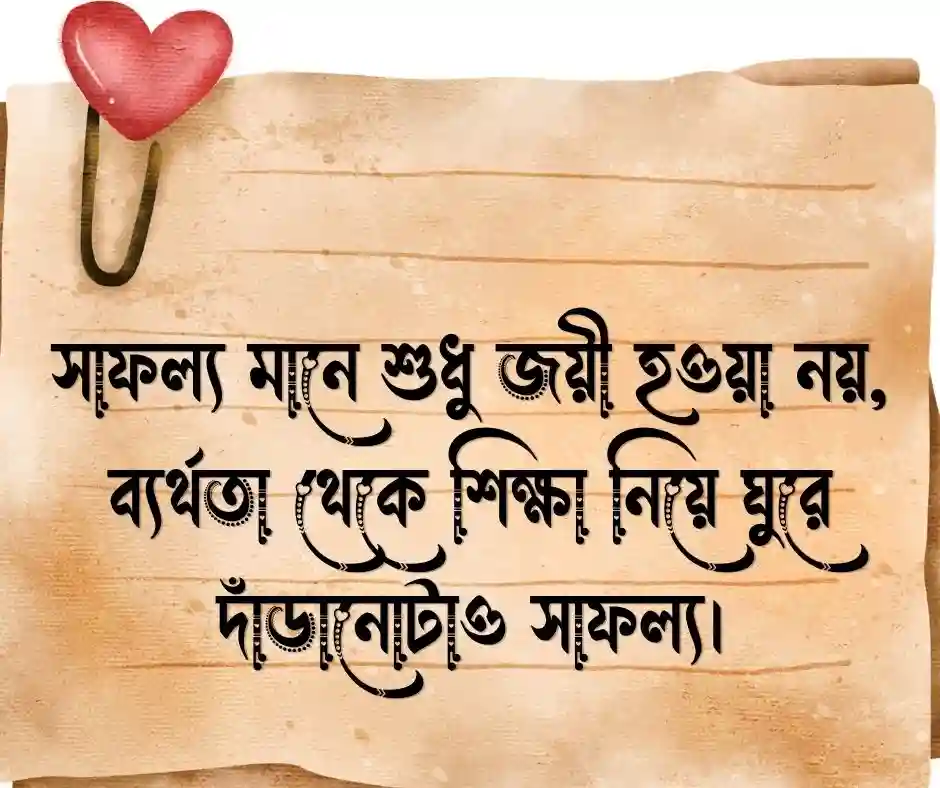 সাফল্য মানে শুধু জয়ী হওয়া নয়,
ব্যর্থতা থেকে শিক্ষা নিয়ে ঘুরে
দাঁড়ানোটাও সাফল্য।